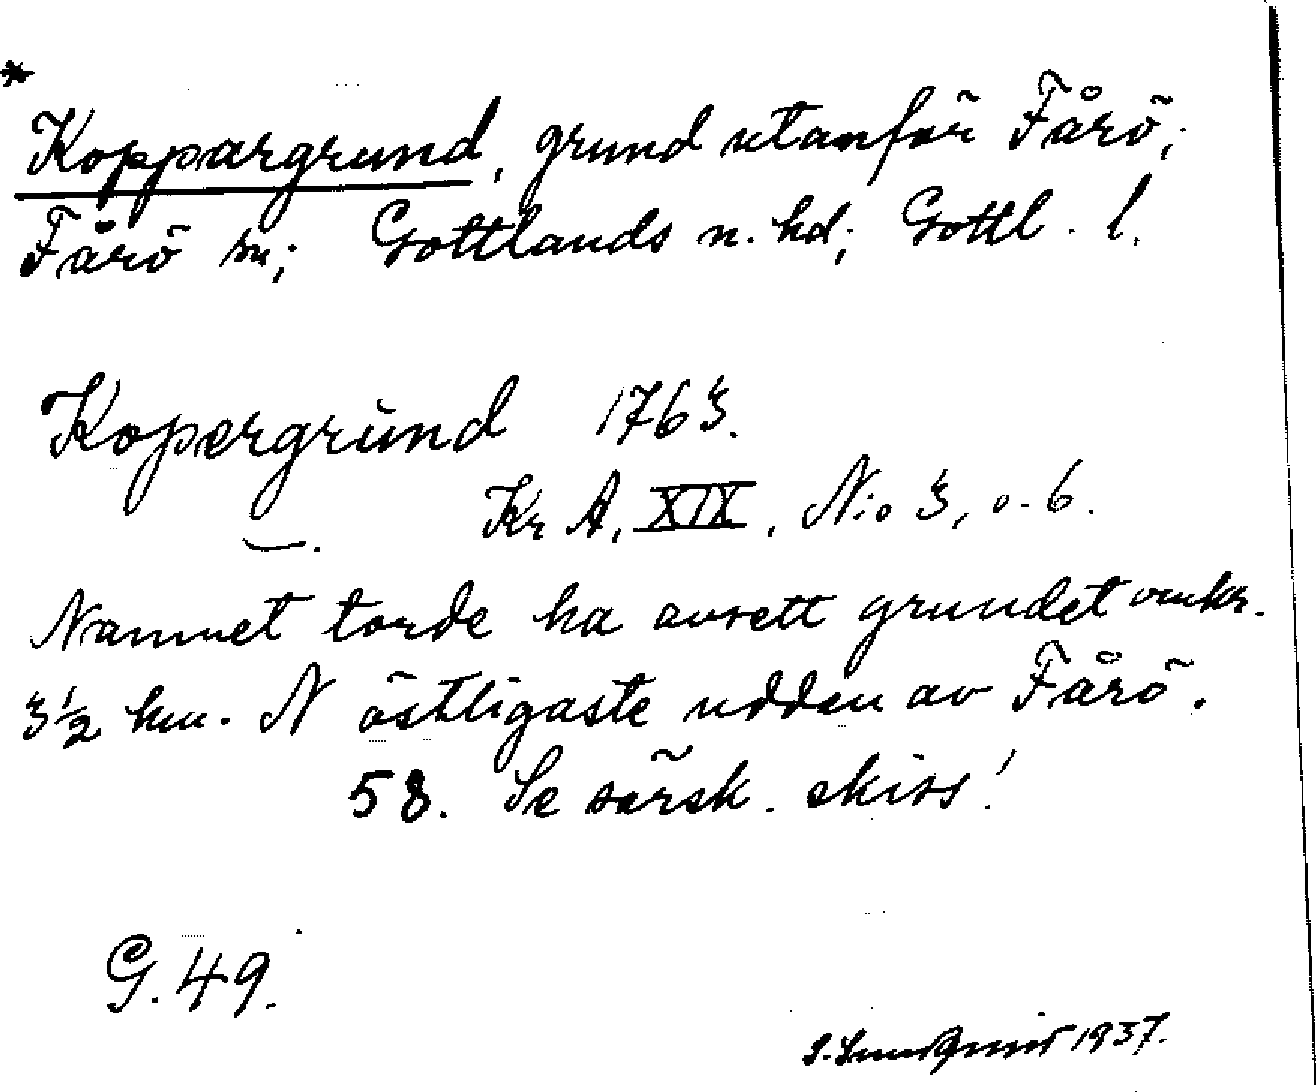 *
Koppargrund, grund utanför Fårö;
Fårö sn; Gottlands n. hd; Gottl. l.
Kopergrund 1763.
Kr A, XIX, N:o 3, o. 6.
—.
Namnet torde ha avsett grundet omkr.
3½ km. N östligaste udden av Fårö.
58. Se särsk. skiss!
G. 49.
S. Lundqvist 1937.